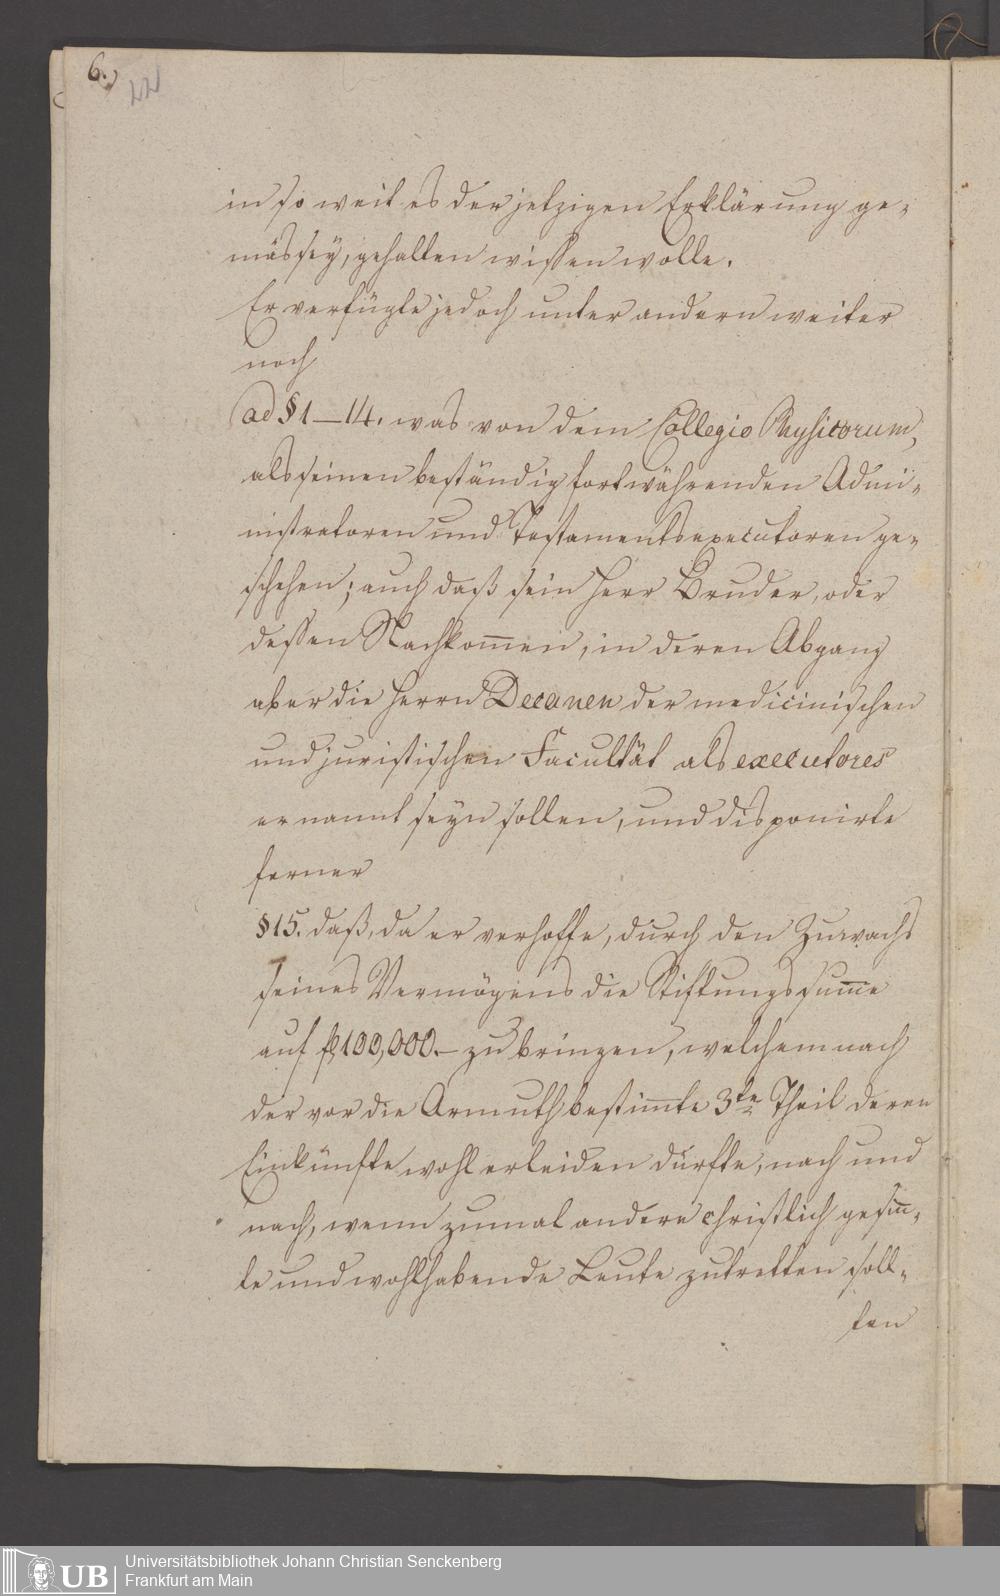 6.)
in so weit es der jetzigen Erklärung ge-
mäs sey, gehalten wissen wolle.
Er verfügte jedoch unter andern weiter
noch
ad § 1–14. was von dem Collegio Physicorum,
als seinen beständig fortwährenden Admi-
nistratoren und Testamentsexecutoren ge-
schehen; auch daß sein Herr Bruder, oder
dessen Nachkom̅en, in deren Abgang
aber die Herrn Decanen der medicinischen
und juristischen Facultät als executores
ernannt seyn sollen, und disponirte
ferner
§ 15. daß, da er verhoffe, durch den Zuwachs
seines Vermögens die Stiftungssum̅e
auf fl 100,000.– zu bringen, welchemnach
der vor die Armuth bestim̅te 3te Theil deren
Einkünfte wohl erleiden dürfte, nach und
nach, wenn zumal andere christlich gesin̅-
te und wohlhabende Leute zutretten soll-
ten
UB
Universitätsbibliothek Johann Christian Senckenberg
Frankfurt am Main